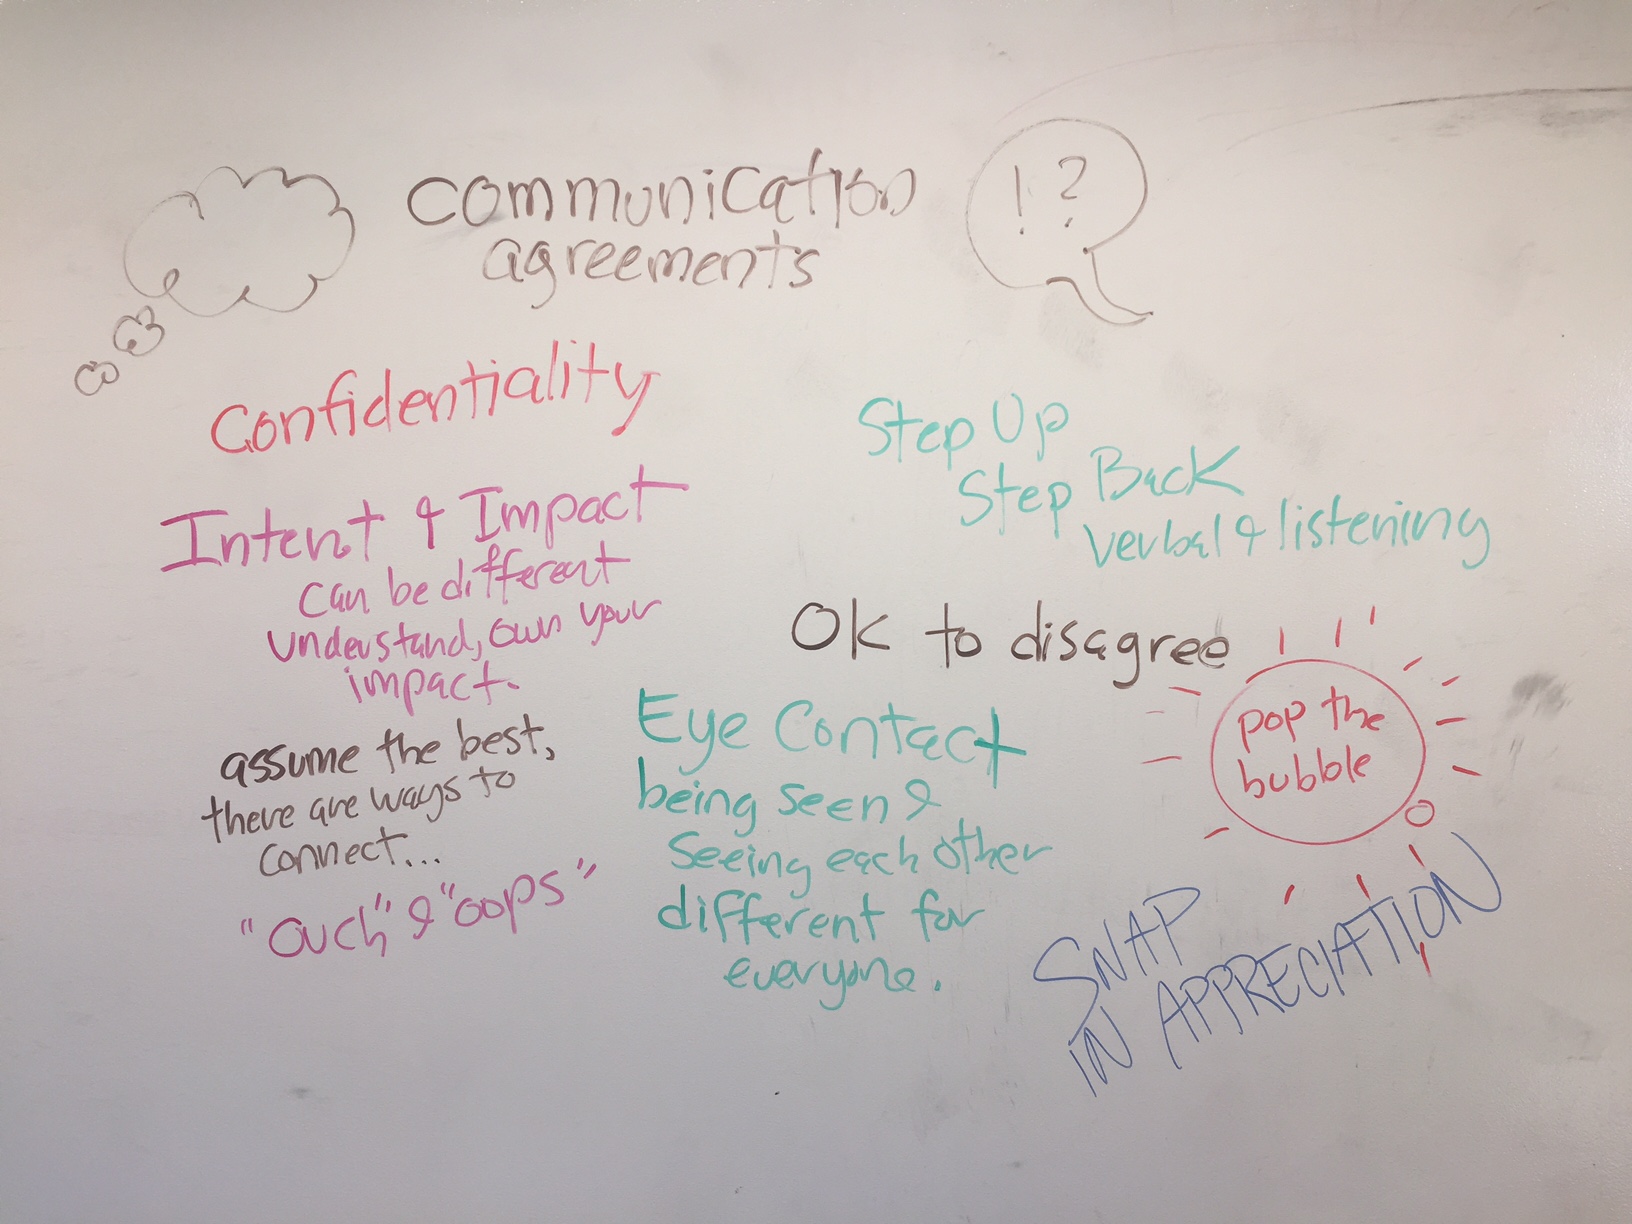 communication
agreements
!?
Confidentiality
Intent & Impact
can be different
understand, own your
impact.
assume the best,
there are ways to
connect...
"Ouch" & "oops"
Step Up
Step Back
verbal & listening
OK to disagree
Eye Contact
being seen &
seeing each other
different for
everyone.
pop the
bubble
SNAP
IN APPRECIATION